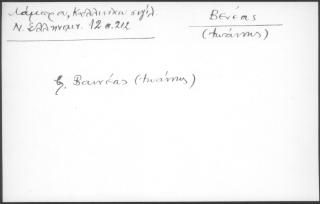 Λάμπρου, Κελλινίκι σελ.
Ν. Ἑλληνομν. 12 σ. 212
Βενέας
(Ἰωάννης)
βλ. Βανέας (Ἰωάννης)